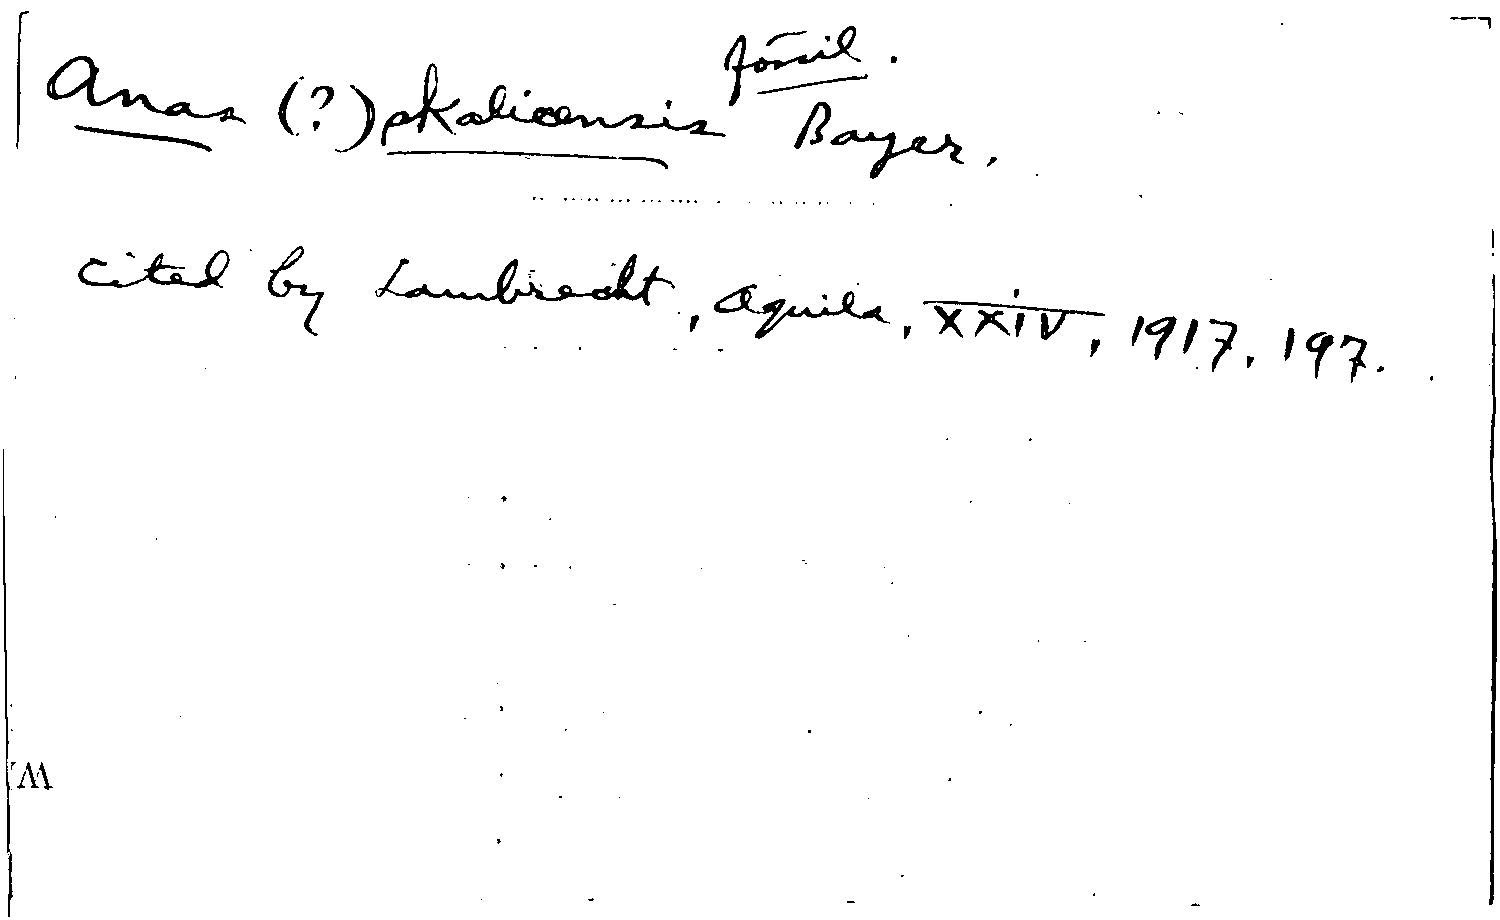 fossil.
Anas (?) skalicensis Bayer.
cited by Lambrecht, Aquila, XXIV, 1917, 197.